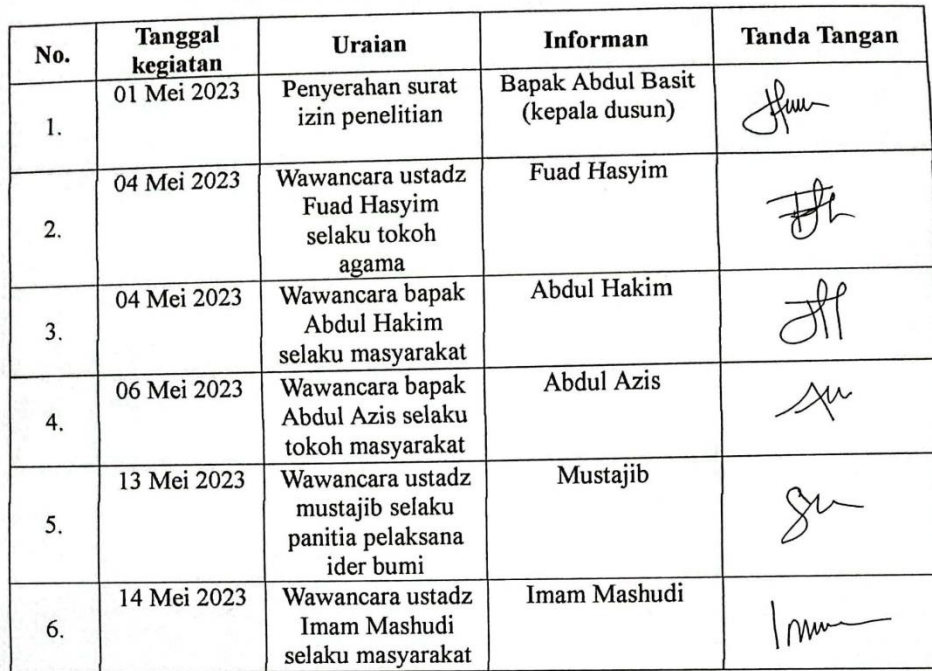 No.
Tanggal
kegiatan
Uraian
Informan
Tanda Tangan
1.
01 Mei 2023
Penyerahan surat
izin penelitian
Bapak Abdul Basit
(kepala dusun)
2.
04 Mei 2023
Wawancara ustadz
Fuad Hasyim
selaku tokoh
agama
Fuad Hasyim
3.
04 Mei 2023
Wawancara bapak
Abdul Hakim
selaku masyarakat
Abdul Hakim
4.
06 Mei 2023
Wawancara bapak
Abdul Azis selaku
tokoh masyarakat
Abdul Azis
5.
13 Mei 2023
Wawancara ustadz
mustajib selaku
panitia pelaksana
ider bumi
Mustajib
6.
14 Mei 2023
Wawancara ustadz
Imam Mashudi
selaku masyarakat
Imam Mashudi